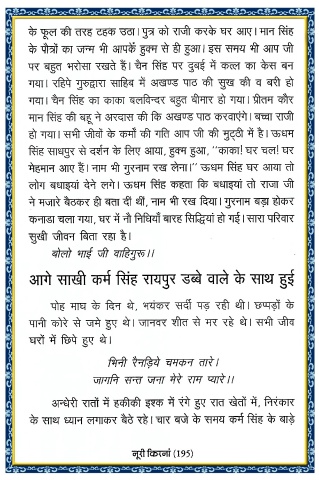 के फूल की तरह टहक उठा। पुत्र को राजी करके घर आए। मान सिंह
के पौत्रों का जन्म भी आपके हुक्म से ही हुआ। इस समय भी आप जी
पर बहुत भरोसा रखते हैं। चैन सिंह पर दुबई में कत्ल का केस बन
गया। रहिपे गुरुद्वारा साहिब में अखण्ड पाठ की सुख की व बरी हो
गया। चैन सिंह का काका बलविन्दर बहुत बीमार हो गया। प्रीतम कौर
मान सिंह की बहू ने अरदास की कि अखण्ड पाठ करवाएंगे। बच्चा राजी
हो गया। सभी जीवों के कर्मों की गति आप जी की मुट्ठी में है। ऊधम
सिंह साधपुर से दर्शन के लिए आया, हुक्म हुआ, ''काका! घर चल! घर
मेहमान आए हैं। नाम भी गुरनाम रख लेना।'' ऊधम सिंह घर आया तो
लोग बधाइयां देने लगे। ऊधम सिंह कहता कि बधाइयां तो राजा जी
ने मजारे बैठकर ही बता दीं थीं, नाम भी रख दिया। गुरनाम बड़ा होकर
कनाडा चला गया, घर में नौ निधियाँ बारह सिद्धियां हो गई। सारा परिवार
सुखी जीवन बिता रहा है।
बोलो भाई जी वाहिगुरू।।
आगे साखी कर्म सिंह रायपुर डब्बे वाले के साथ हुई
पोह माघ के दिन थे, भयंकर सर्दी पड़ रही थी। छप्पड़ों के
पानी कोरे से जमे हुए थे। जानवर शीत से मर रहे थे। सभी जीव
घरों में छिपे हुए थे।
भिनी रैनड़िये चमकन तारे।
जागनि सन्त जना मेरे राम प्यारे।।
अन्धेरी रातों में हकीकी इश्क में रंगे हुए रात खेतों में, निरंकार
के साथ ध्यान लगाकर बैठे रहे। चार बजे के समय कर्म सिंह के बाड़े
नूरी किरनां (195)